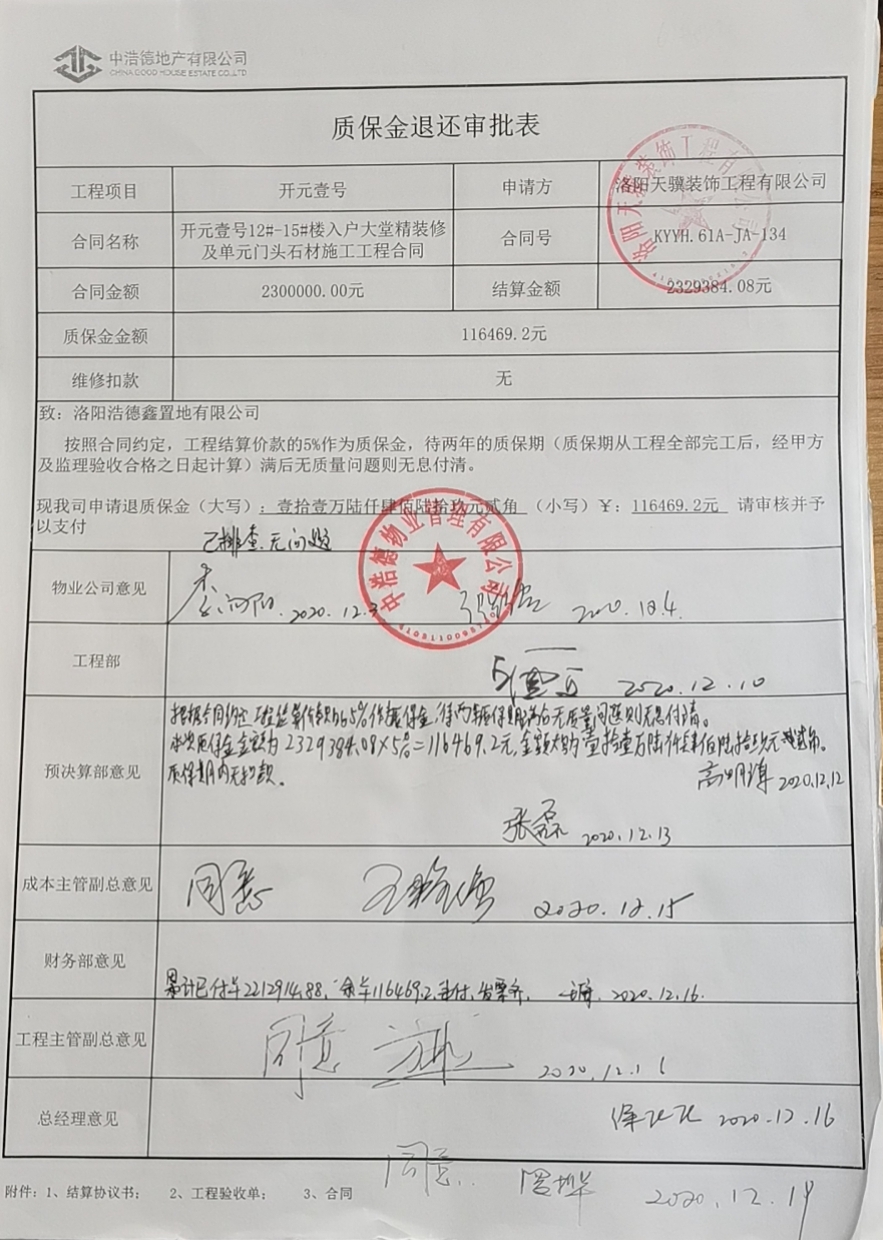 中浩德地产有限公司
CHINA GOOD HOUSE ESTATE CO.,LTD
质保金退还审批表
工程项目 开元壹号 申请方 洛阳天骥装饰工程有限公司
合同名称 开元壹号12#-15#楼入户大堂精装修
及单元门头石材施工工程合同 合同号 KYYH.61A-JA-134
合同金额 2300000.00元 结算金额 2329384.08元
质保金金额 116469.2元
维修扣款 无
致：洛阳浩德鑫置地有限公司
按照合同约定，工程结算价款的5%作为质保金，待两年的质保期（质保期从工程全部完工后，经甲方
及监理验收合格之日起计算）满后无质量问题则无息付清。
现我司申请退质保金（大写）：壹拾壹万陆仟肆佰陆拾玖元贰角 （小写）¥：116469.2元 请审核并予
以支付
已排查.无问题
中浩德物业管理有限公司
物业公司意见 李向阳. 2020.12.3
工程部 2020.12.10
根据合同约定 工程结算价款的5%作质保金，待两年质保期满后无质量问题则无息付清。
本次质保金金额为2329384.08×5%=116469.2元，金额大写为壹拾壹万陆仟肆佰陆拾玖元贰角。
预决算部意见 质保期内无扣款。 2020.12.12
张磊 2020.12.13
成本主管副总意见 同意 2020.12.15
财务部意见
累计已付¥2212914.88，余¥116469.2未付，发票齐， 2020.12.16.
工程主管副总意见 同意 2020.12.16
总经理意见 2020.12.16
同意
附件：1、结算协议书； 2、工程验收单； 3、合同
2020.12.19